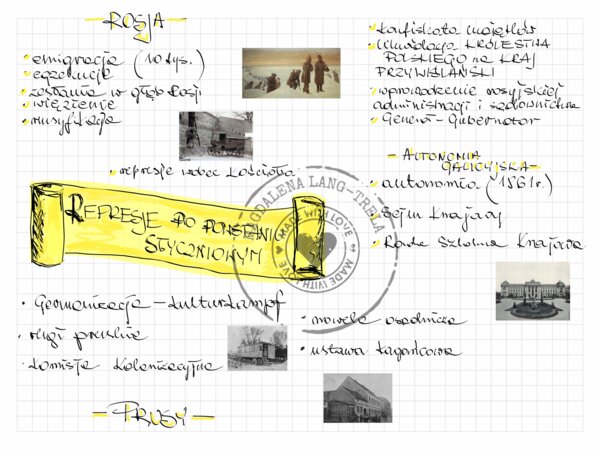 - ROSJA -
emigracja (10 tys.)
egzekucje
zesłania w głąb Rosji
więzienie
rusyfikacja
represje wobec Kościoła
konfiskata majątków
likwidacja KRÓLESTWA
POLSKIEGO na KRAJ
PRZYWIŚLAŃSKI
wprowadzenie rosyjskiej
administracji i sądownictwa
Generał-Gubernator
- AUTONOMIA
GALICYJSKA -
autonomia (1861r.)
Sejm Krajowy
Rada Szkolna Krajowa
REPRESJE PO POWSTANIU
STYCZNIOWYM
MAGDALENA LANG-TREŁA
MADE WITH LOVE
MADE WITH LOVE
Germanizacja - kulturkampf
rugi pruskie
Komisja Kolonizacyjna
nowela osadnicza
ustawa kagańcowa
- PRUSY -